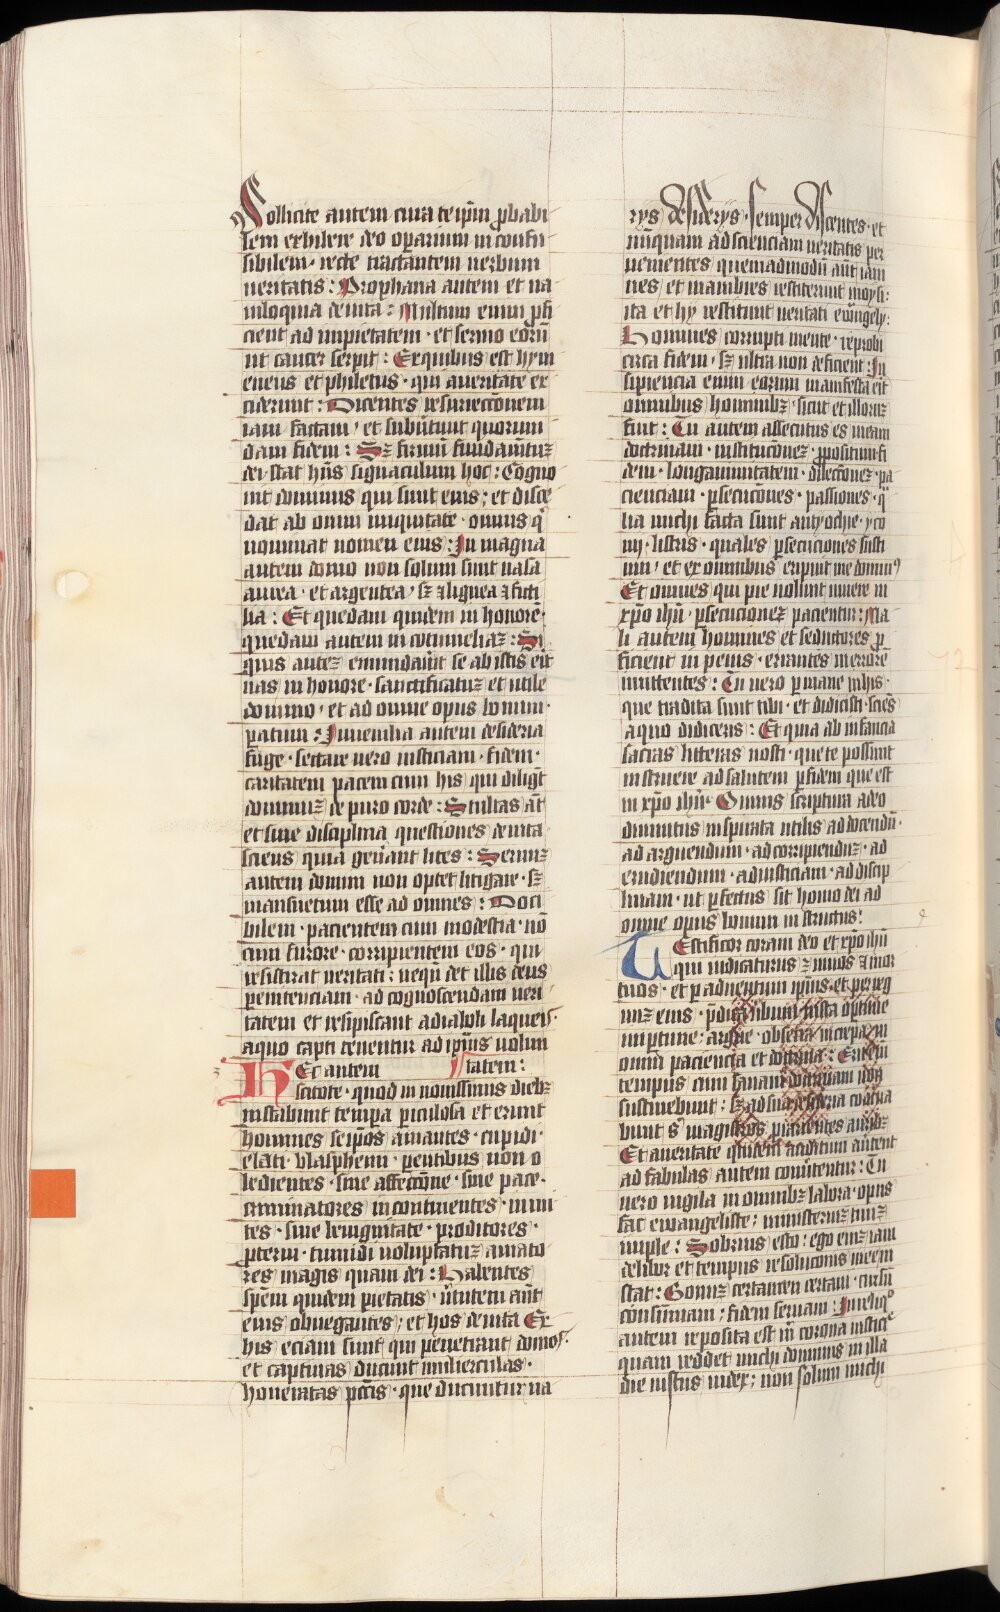 Sollicite autem cura teip̄m ꝓbabi
lem exhibere deo oꝑarium inconfu
sibilem · recte tractantem uerbum
ueritatis : Prophana autem et ua
niloquia deuita : Multum enim ꝓfi
cient ad impietatem · et sermo eorū
ut cancer serpit : Exquibus est hym
eneus et philetus · qui aueritate ex
ciderunt : Dicentes resurrecc̄onem
iam factam / et subūtunt quorun
dam fidem : Sꝫ firmū fundamētuꝫ
dei stat hn̄s signaculum hoc : Cogno
uit dominus qui sunt eius ; et disce
dat ab omni iniquitate · omnis q̄
nominat nomen eius : In magna
autem domo non solum sunt uasa
aurea · et argentea / sꝫ ⁊lignea ⁊ ficti
lia : Et quedam quidem in honorē ·
quedam autem in cotumeliaꝫ : Si
quis auteꝫ emundau̓it se ab istis eīt
uas in honore · sanctificatuꝫ et utile
domino / et ad omne opus bonum ·
paratum : Iuuenilia autem desideria
fuge · sectare uero iusticiam · fidem ·
caritatem pacem cum his qui diligūt
dominuꝫ de puro corde : Stultas āt
et sine disciplina questiones deuita
sciens quia gen̓ant lites : Seruuꝫ
autem domini non optet litigare · sꝫ
mansuetum esse ad omnes : Doci
bilem · pacientem cum modestia · nō
cum furore · corripientem eos · qui
resistunt ueritati : nequn̄ det illis deus
penitenciam · ad cognoscendam ueri
tatem et resipiscant adiaboli laqueis
aquo capti tenentur ad ip̄ius uolun
Hec autem tatem :
scitote · quod in nouissimis diebꝫ
instabunt tempa ꝑiculosa et erunt
homines seip̄os amantes · cupidi ·
elati · blasphemi · parentibus non o
bedientes · sine affecc̄one · sine pace ·
criminatores incontinentes · inmi
tes · sine benignitate · proditores ·
pterui · tumidi uoluptatuꝫ amato
res magis quam dei : Habentes
sp̄em quidem pietatis · u̓tutem aūt
eius abnegantes ; et hos deuita Ex
his eciam sunt qui penetrant domos ·
et captiuas ducunt mulierculas ·
honeratas pc̄cis · que ducuntur ua
rijs desiderijs · semper discentes · et
nūquam ad scienciam ueritatis per
uenientes quemadmodū aūt iam
nes et mambres restiterunt moysi :
ita et hij restitunt ueritati ewāngelij :
Homines corrupti mente · reprobi
circa fidem · sꝫ ultra non ꝓficient : In
sipiencia enim eorum manifesta eīt
omnibus hominibꝫ · sicut et illoruꝫ
fuit : Tu autem assecutus es meam
doctrinam · instituc̄oneꝫ · ꝓpositum · fi
dem · longanimitatem · dilecc̄oneꝫ · pa
cienciam · ꝑsecuc̄ones · passiones · q̄
lia michi facta sunt anthyochie · yco
nij · listris · quales ꝑsecuciones susti
nui / et ex omnibus eripuit me dominꝰ
Et omnes qui pie uolunt uiuere in
xp̄o ihū · ꝑsecucioneꝫ pacientur : Ma
li autem homines et seductores ꝓ
ficient in peius · errantes ⁊ in errorē
mittentes : Tu uero ꝑmane in hijs ·
que tradita sunt tibi · et didicisti · sciēs
aquo didiceris : Et quia ab infancia
sacras litteras nosti · que te possunt
instruere ad salutem ꝑ fidem que est
in xp̄o ihū · Omnis scriptura adeo
diuinitus inspirata utilis ad docendū ·
ad arguendum · ad corripienduꝫ · ad
erudiendum · adiusticiam · ad discip
linam · ut ꝑfectus sit homo dei ad
omne opus bonum instructus :
Testificor coram deo et xp̄o ihū
qui iudicaturus ē uiuos ⁊ mor
tuos · et ꝑ aduentum ip̄ius et per reg
nuꝫ eius · p̄dica uerbum insta optune
inptune : argue · obsecra increpa in
omni paciencia et doctrina : Erit eni
tempus cum sanam doctrinam non
sustinebunt ; sꝫ ad sua desideria coac̓ua
bunt s̄ magistros prurientes auribꝫ
Et aueritate quidem auditum au̓tent
ad fabulas autem conu̓tentur : Tu
uero uigila in omnibꝫ labora · opus
fac ewangeliste ; ministeriuꝫ tuuꝫ
imple : Sobrius esto : ego enim iam
delibor et tempus resoluc̄onis mee in
stat : Bonuꝫ certamen certaui · cursū
consūmaui ; fidem seruaui : In reliqꝰ
autem reposita est m̄ corona iusticie
quam reddet michi dominus in illa
die iustus iudex ; non solum michi